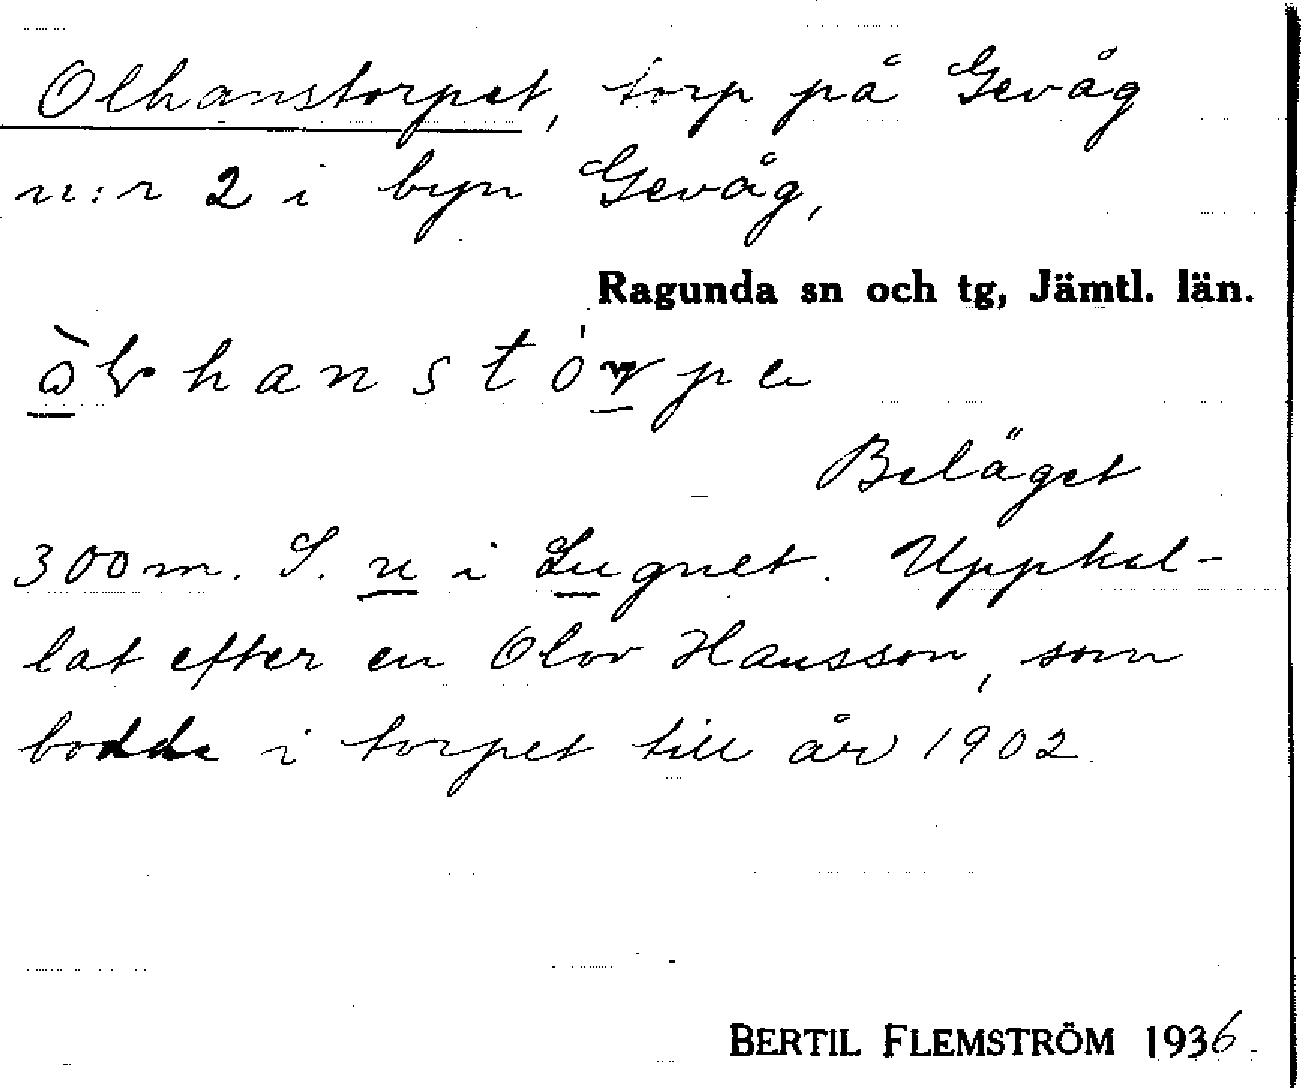 Olhanstorpet, torp på Gevåg
n:r 2 i byn Gevåg,
Ragunda sn och tg, Jämtl. län.
Beläget
300 m. S. u i Lugnet. Uppkal-
lat efter en Olov Hansson, som
bodde i torpet till år 1902.
BERTIL FLEMSTRÖM 1936.